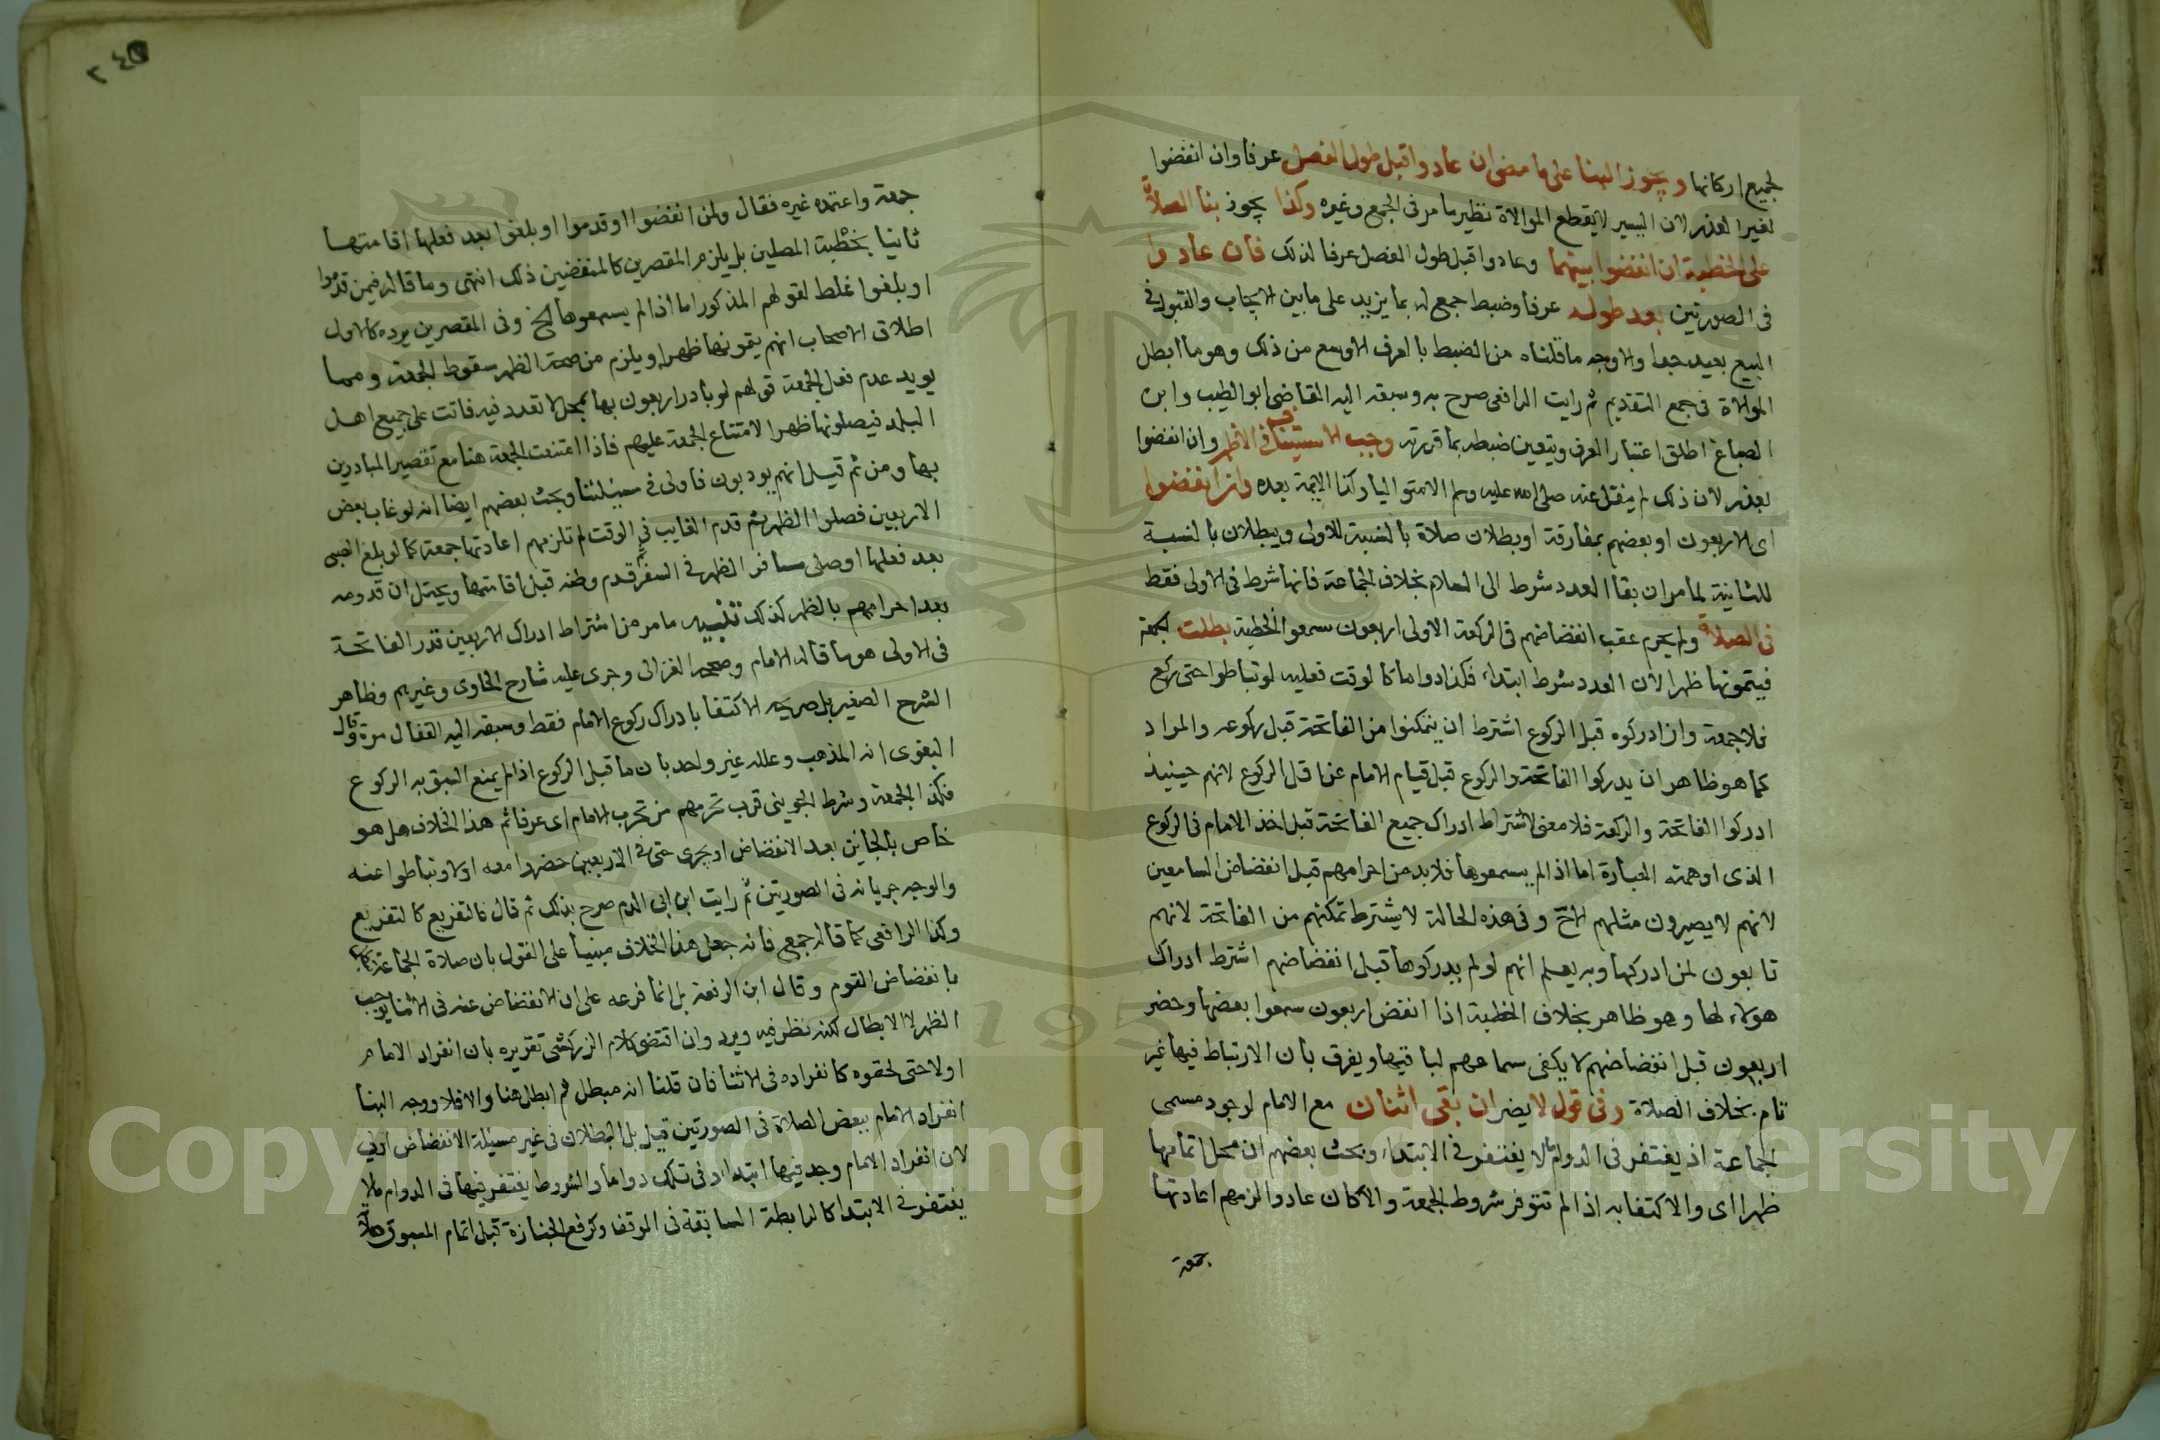 لجميع اركانها ويجوز البنا على ما مضى ان عادوا قبل طول الفصل عرفا وان انفضوا
لغير العذر لان اليسير لا يقطع الموالاة نظير ما مر فى الجمع وغيره وكذا يجوز بنا الصلاة
على الخطبة ان انفضوا بينهما وعادوا قبل طول الفصل عرفا لذلك فان عادوا
فى الصورتين بعد طوله عرفا وضبط جمع له بما يزيد على ما بين الايجاب والقبول فى
البيع بعيد جدا والاوجه ما قلناه من الضبط بالعرف الاوسع من ذلك وهو ما ابطل
الموالاة فى جمع التقديم ثم رايت الرافعى صرح به وسبقه اليه القاضى ابو الطيب وابن
الصباغ اطلق اعتبار العرف ويتعين ضبطه بما قررته وجب الاستيناف فى الاظهر وان انفضوا
بعذر لان ذلك لم ينقل عنه صلى الله عليه وسلم الا متواليا وكذا الايمة بعده وان انفضوا
اى الاربعون او بعضهم بمفارقة او بطلان صلاة بالنسبة للاولى وببطلان بالنسبة
للثانية لما مر ان بقا العدد شرط الى السلام بخلاف الجماعة فانها شرط فى الاولى فقط
فى الصلاة ولم يحرم عقب انفضاضهم فى الركعة الاولى اربعون سمعوا الخطبة بطلت الجمعة
فيتمونها ظهرا لان العدد شرط ابتداء فكذا دواما كالوقت فعليه لو تباطوا حتى ركع
فلا جمعة وان ادركوه قبل الركوع اشترط ان يتمكنوا من الفاتحة قبل ركوعه والمراد
كما هو ظاهر ان يدركوا الفاتحة والركوع قبل قيام الامام عن اقل الركوع لانهم حينيذ
ادركوا الفاتحة والركعة فلا معنى لاشتراط ادراك جميع الفاتحة قبل اخذ الامام فى الركوع
الذى اوهمته العبارة اما اذا لم يسمعوها فلا بد من احرامهم قبل انفضاض السامعين
لانهم لا يصيرون مثلهم الا ح وفى هذه الحالة لا يشترط تمكنهم من الفاتحة لانهم
تابعون لمن ادركها وبه يعلم انهم لو لم يدركوها قبل انفضاضهم اشترط ادراك
هولاء لها وهو ظاهر بخلاف الخطبة اذا انفض اربعون سمعوا بعضها وحضر
اربعون قبل انفضاضهم لا يكفى سماعهم لباقيها ويفرق بان الارتباط فيها غير
تام بخلاف الصلاة وفى قول لا يضر ان بقى اثنان مع الامام لوجود مسمى
الجماعة اذ يغتفر فى الدوام ما لا يغتفر فى الابتداء وبحث بعضهم ان محل اتمامها
ظهرا اى والاكتفا به اذا لم تتوفر شروط الجمعة والا كان عادوا لزمهم اعادتها
جمعة
٢٤٥
جمعة واعتمده غيره فقال ولمن انفضوا او قدموا او بلغوا بعد فعلها اقامتها
ثانيا بخطبة المصلين بل يلزم المقصرين كالمنفضين ذلك انتهى وما قاله فيمن قدموا
او بلغوا غلط لقولهم المذكور اما اذا لم يسمعوها الخ وفى المقصرين يرده كالاول
اطلاق الاصحاب انهم يتمونها ظهرا ويلزم من صحة الظهر سقوط الجمعة ومما
يويد عدم فعل الجمعة قولهم لو بادر اربعون بها بمحل لا تعدد فيه فاتت على جميع اهل
البلد فيصلونها ظهرا لامتناع الجمعة عليهم فاذا امتنعت الجمعة هنا مع تقصير المبادرين
بها ومن ثم قيل انهم يودبون فاولى فى مسيلتنا وبحث بعضهم ايضا انه لو غاب بعض
الاربعين فصلوا الظهر ثم قدم الغايب فى الوقت لم تلزمهم اعادتها جمعة كما لو بلغ الصبى
بعد فعلها او صلى مسافر الظهر فى السفر ثم قدم وطنه قبل اقامتها ويحتمل ان قدومه
بعد احرامهم بالظهر كذلك تنبيه ما مر من اشتراط ادراك الاربعين قدر الفاتحة
فى الاولى هو ما قاله الامام وصححه الغزالى وجرى عليه شارح الحاوى وغيرهم وظاهر
الشرح الصغير بل صريحه الاكتفا بادراك ركوع الامام فقط وسبقه اليه القفال مرة وقال
البغوى انه المذهب وعلله غير واحد بان ما قبل الركوع اذا لم يمنع السبق به الركوع
فكذا الجمعة وشرط الجوينى قرب تحرمهم من تحرم الامام اى عرفا ثم هذا الخلاف هل هو
خاص بالجاين بعد الانفضاض او يجرى حتى فى الاربعين حضروا معه اولا وتباطوا عنه
والوجه جريانه فى الصورتين ثم رايت ابن ابى الدم صرح بذلك ثم قال فالتفريع كالتفريع
وكذا الرافعى كما قاله جمع فانه جعل هذا الخلاف مبنيا على القول بان صلاة الجماعة
بانفضاض القوم وقال ابن الرفعة بل انما فرعه على ان الانفضاض عنه فى الاثنا يوجب
الظهر لا الابطال لكنه نظر فيه ويرد وان اقتضى كلام الزركشى تقريره بان انفراد الامام
اولا حتى لحقوه كانفراده فى الاثنا فان قلنا انه مبطل ثم ابطل هنا والا فلا ووجه البنا
انفراد الامام ببعض الصلاة فى الصورتين قيل بل البطلان فى غير مسيلة الانفضاض اولى
لان انفراد الامام وجد فيها ابتداء وفى تلك دواما والشروط يغتفر فيها فى الدوام ما لا
يغتفر فى الابتدا كالرابطة السابقة فى الموقف وكرفع الجنازة قبل اتمام المسبوق صلاة
Copyright © King Saud University
195